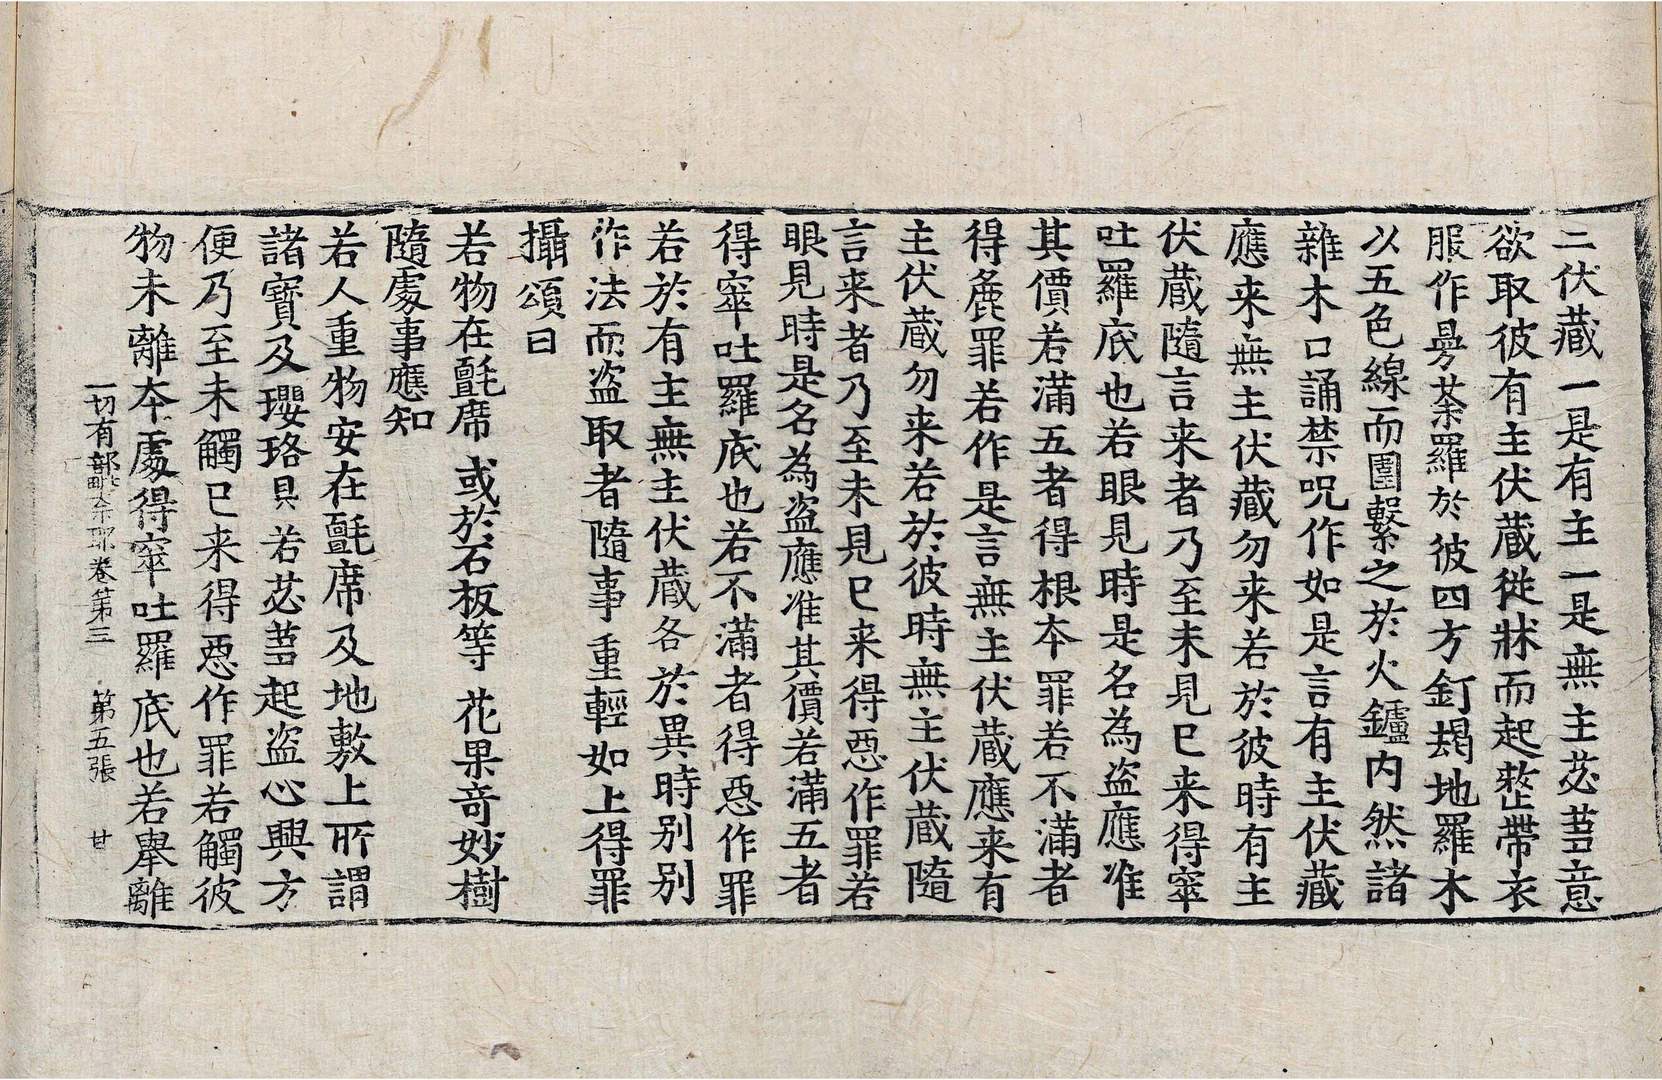 二伏藏一是有主一是無主苾蒭意
欲取彼有主伏藏從牀而起整帶衣
服作曼荼羅於彼四方釘朅地羅木
以五色線而圍繫之於火鑪内然諸
雜木口誦禁呪作如是言有主伏藏
應来無主伏藏勿来若於彼時有主
伏藏隨言来者乃至未見已来得窣
吐羅底也若眼見時是名為盜應准
其價若滿五者得根本罪若不滿者
得麁罪若作是言無主伏藏應来有
主伏藏勿来若於彼時無主伏藏隨
言来者乃至未見已来得惡作罪若
眼見時是名為盜應准其價若滿五者
得窣吐羅底也若不滿者得惡作罪
若於有主無主伏藏各於異時别别
作法而盜取者隨事重輕如上得罪
攝頌曰
若物在氈席 或於石板等 花果奇妙樹
隨處事應知
若人重物安在氈席及地敷上所謂
諸寶及瓔珞具若苾蒭起盜心興方
便乃至未觸已来得惡作罪若觸彼
物未離本處得窣吐羅底也若舉離
一切有部毗奈耶卷第三 第五張 甘